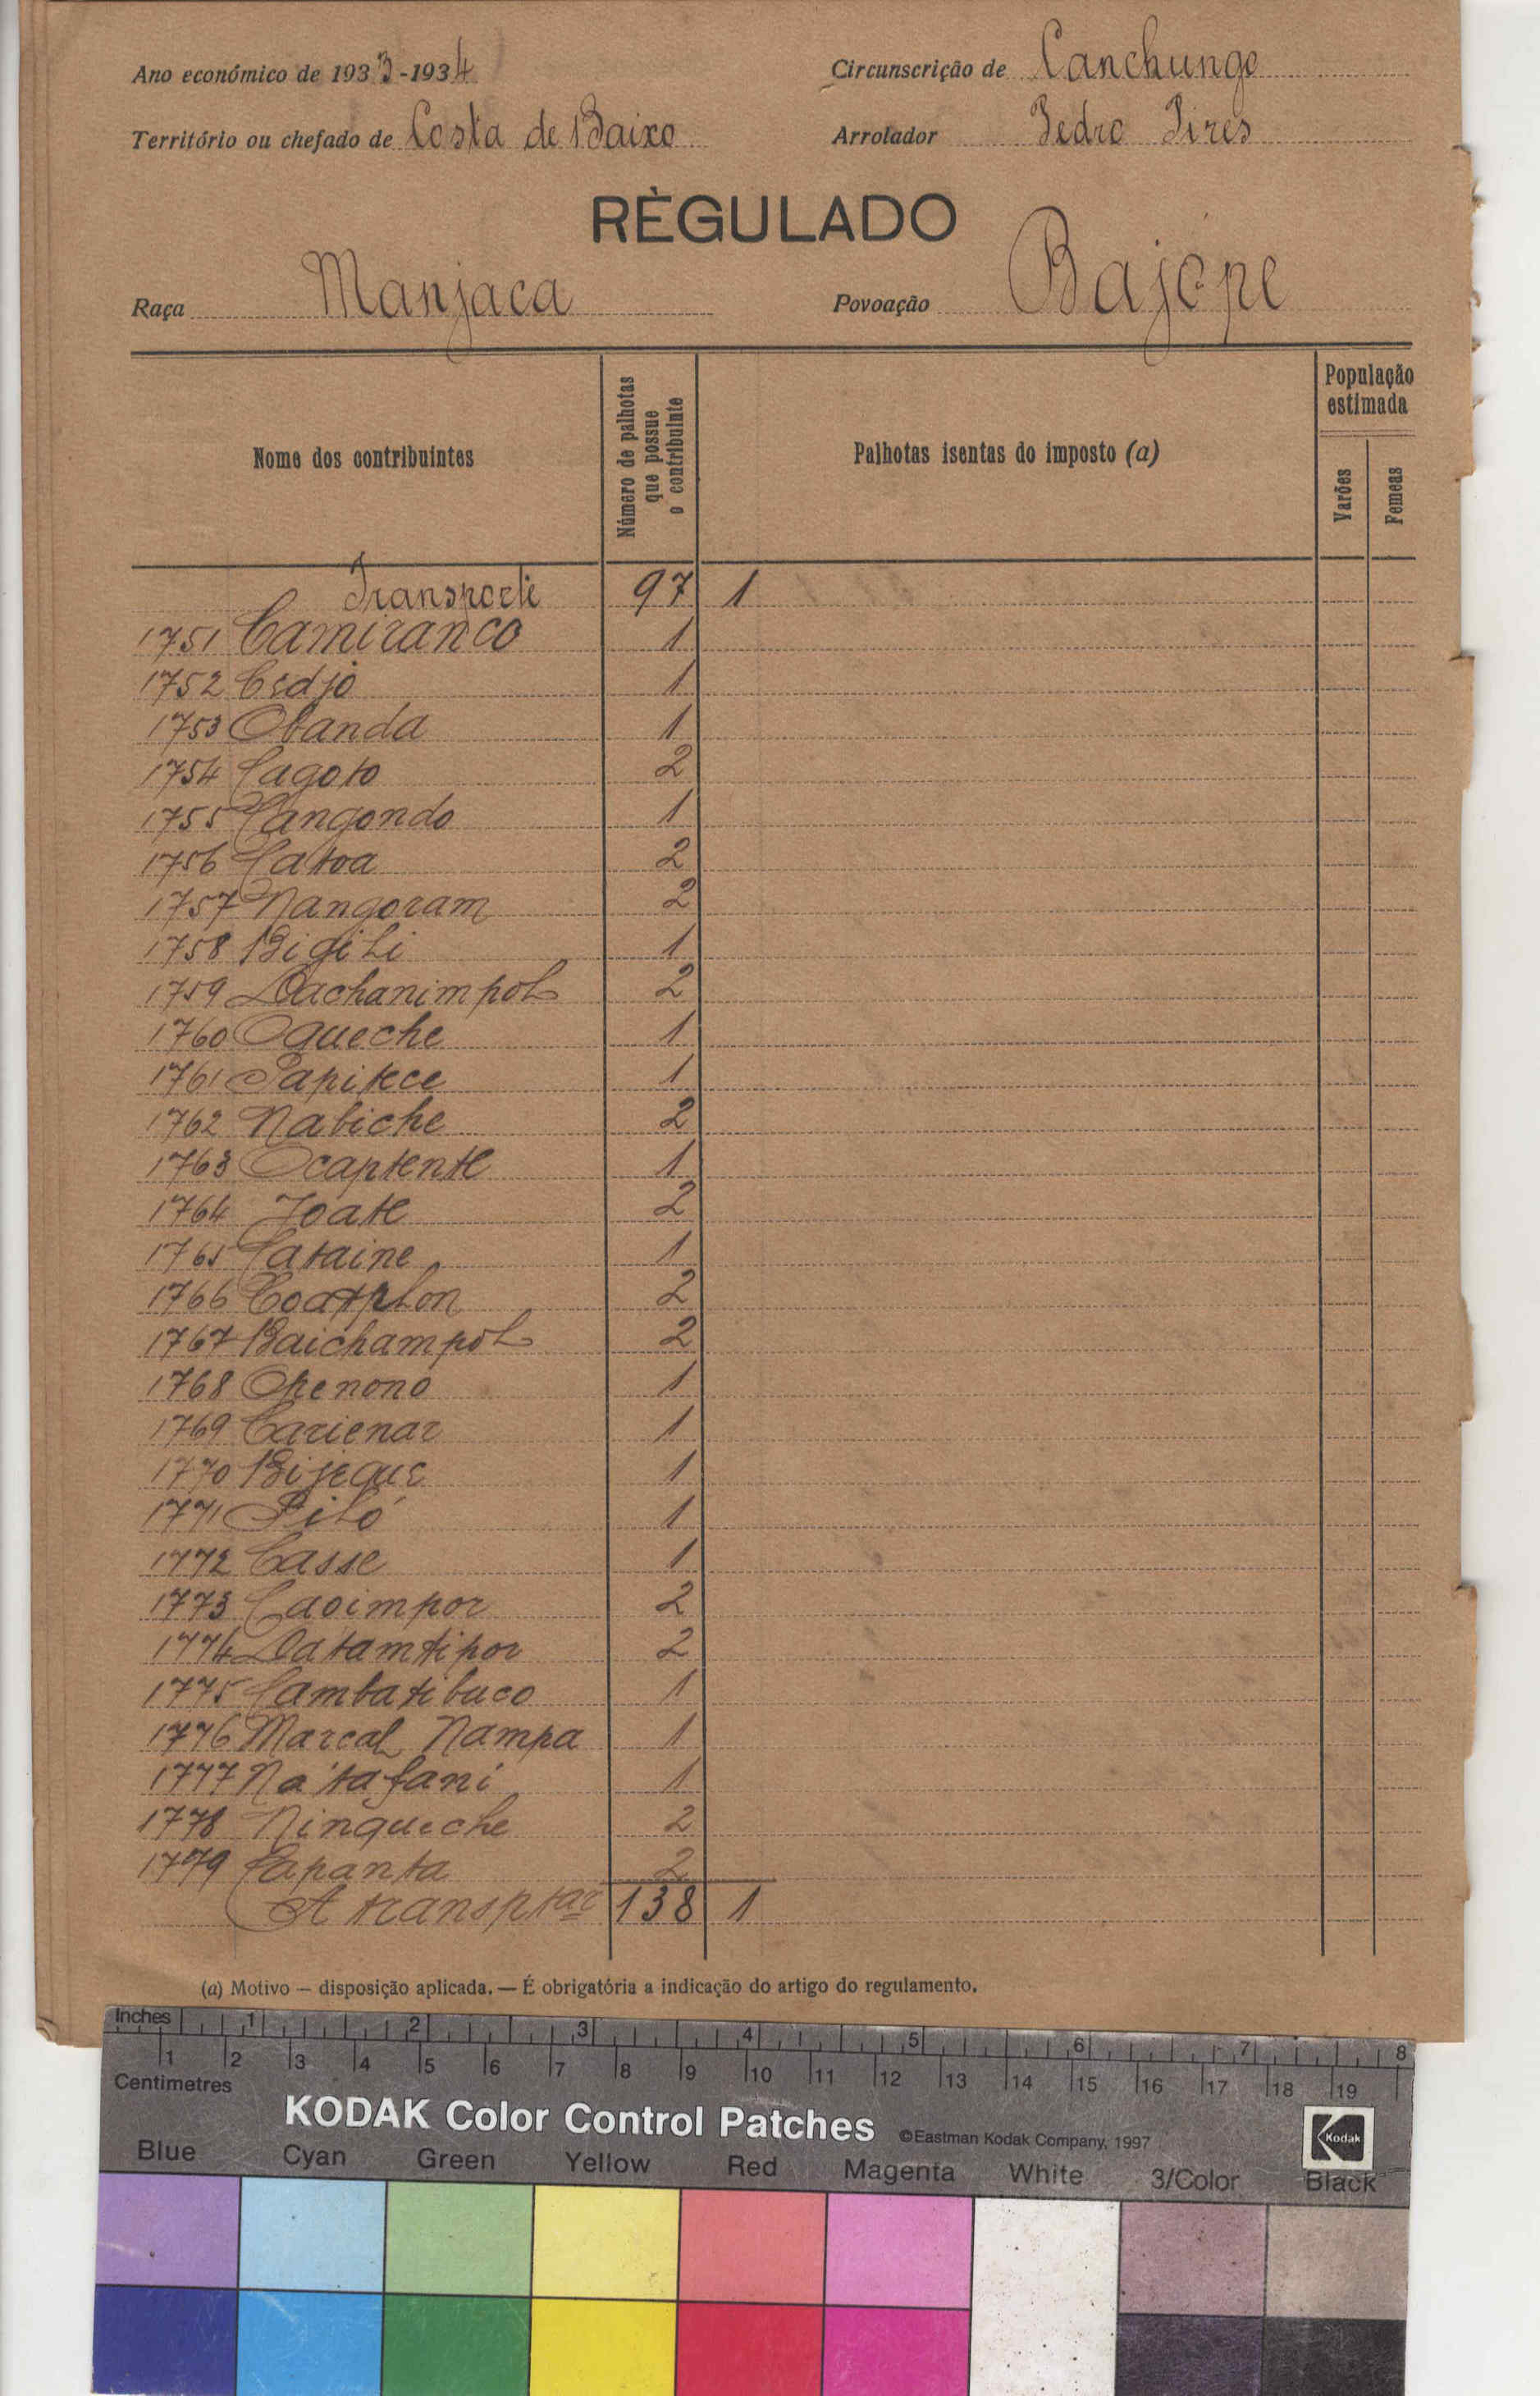 Ano económico de 1933-1934
Circunscrição de Canchungo
Território ou chefado de Costa de Baixo
Arrolador Pedro Pires
RÈGULADO
Raça Manjaca
Povoação Bajope
Nome dos contribuintes
Número de palhotas que possue o contribuinte
Palhotas isentas do imposto (a)
População estimada
Varões
Femeas
Transporte 97 1
1751 Camiranco 1
1752 Cedjó 1
1753 Obanda 1
1754 Cagoto 2
1755 Cangondo 1
1756 Catoa 2
1757 Nangoram 2
1758 Bigili 1
1759 Dachanimpol 2
1760 Oqueche 1
1761 Papitece 1
1762 Nabiche 2
1763 Ocaptente 1
1764 Joate 2
1765 Cataine 1
1766 Coatplon 2
1767 Baichampol 2
1768 Openono 1
1769 Carienar 1
1770 Bijeque 1
1771 Filó 1
1772 Casse 1
1773 Caoimpor 2
1774 Datamtipor 2
1775 Cambatibuco 1
1776 Marcal Nampa 1
1777 Natafani 1
1778 Ninqueche 2
1779 Capanta 2
A transptar 138 1
(a) Motivo — disposição aplicada. — É obrigatória a indicação do artigo do regulamento.
Inches 1 2 3 4 5 6 7 8
1 2 3 4 5 6 7 8 9 10 11 12 13 14 15 16 17 18 19
Centimetres
KODAK Color Control Patches ©Eastman Kodak Company, 1997 Kodak
Blue Cyan Green Yellow Red Magenta White 3/Color Black